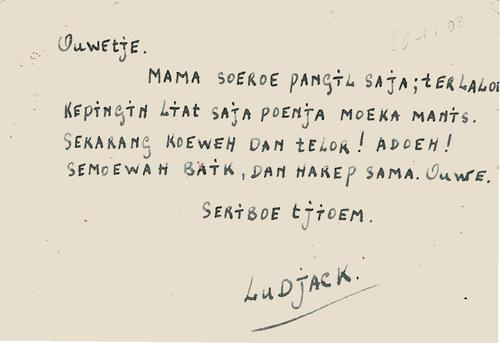 Ouwetje.
MAMA SOEROE PANGiL SAjA; tERLALOE
KEPiNGiN LiAt SAjA POENjA MOEKA MANiS.
SEKARANG KOEWEH DAN tELOR! ADOEH!
SEMOEWAH BAiK, DAN HAREP SAMA. OUWE.
SERiBOE tjiOEM.
LUDjACK.